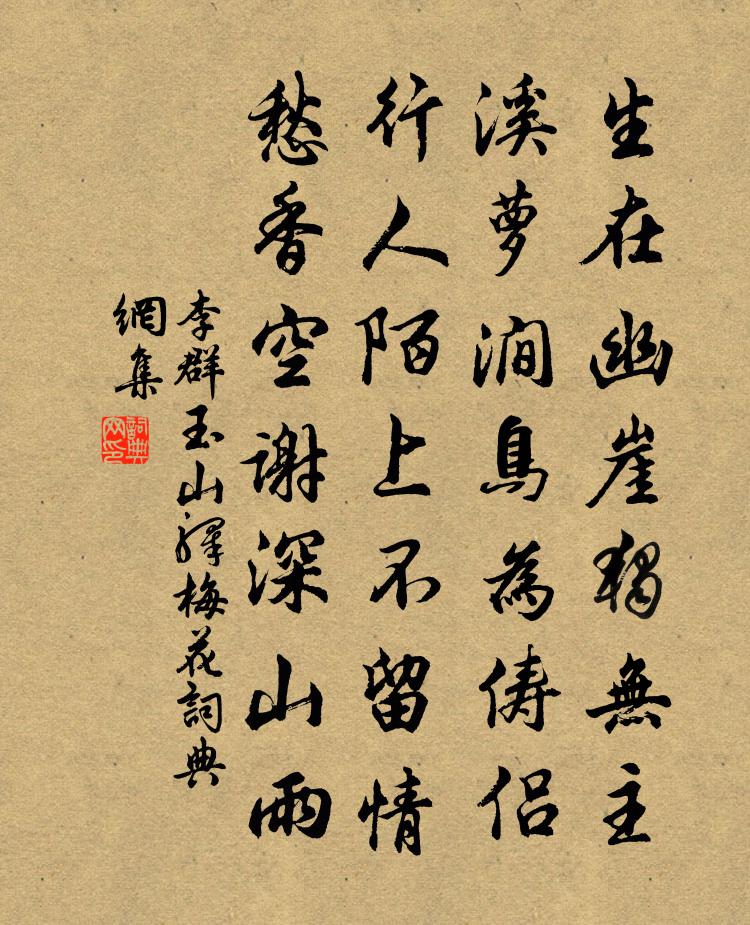 生在幽崖獨無主
溪蘿澗鳥為儔侶
行人陌上不留情
愁香空謝深山雨
李群玉山驛梅花詞典
網集
詞典
网印